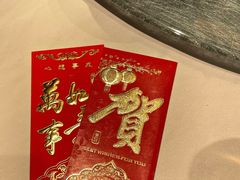 心想事成
萬事如意
賀
BEST WISHES FOR YOU